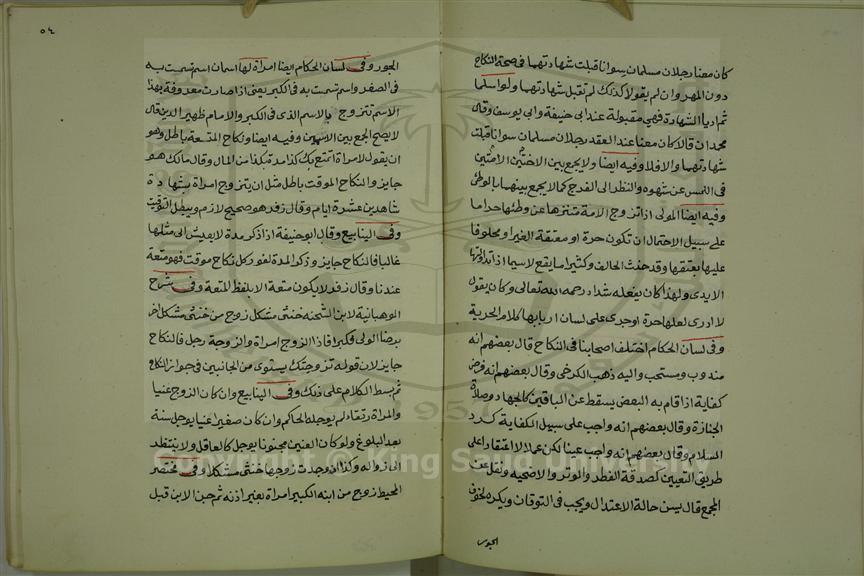 كان معنا رجلان مسلمان سوانا قبلت شهادتهما في صحة النكاح
دون المهر وان لم يقولا كذلك لم تقبل شهادتهما ولو اسلما
ثم اديا الشهادة فهي مقبولة عند ابي حنيفة وابي يوسف وقال
محمد ان قالا كان معنا عند العقد رجلان مسلمان سوانا قبلت
شهادتهما والا فلا وفيه ايضا ولا يجمع بين الاختين الامتين
في اللمس عن شهوه والنظر الى الفرج كما لا يجمع بينهما بالوطئ
وفيه ايضا المولى اذا تزوج الامة تنزها عن وطئها حراما
على سبيل الاحتمال ان تكون حرة او معتقة الغير او محلوفا
عليها بعتقها وقد حنث الحالف وكثيرا ما يقع لاسيما اذا تداولتها
الايدى ولهذا كان يفعله شداد رحمه الله تعالى وكان يقول
لا ادرى لعلها حرة او جرى على لسان اربابها كلام الحرية
وفي لسان الحكام اختلف اصحابنا في النكاح قال بعضهم انه
مندوب ومستحب واليه ذهب الكرخي وقال بعضهم انه فرض
كفاية اذا قام به البعض يسقط عن الباقين كالجهاد وصلاة
الجنازة وقال بعضهم انه واجب على سبيل الكفاية كرد
السلام وقال بعضهم انه واجب عينا لكن عملا لا اعتقادا على
طريق التعيين كصدقة الفطر والوتر والاضحيه ونقل عن
المجمع قال يسن حالة الاعتدال ويجب في التوقان ويكره لخوف
الجور
٥٤
الجور وفي لسان الحكام ايضا امراة لها اسمان اسم تسمت به
في الصغر واسم تسمت به في الكبر يعني اذا صارت معروفة بهذا
الاسم تتزوج بالاسم الذى في الكبر والامام ظهير الدين قال
لا يصح الجمع بين الاسمين وفيه ايضا ونكاح المتعة باطل وهو
ان يقول لامراة اتمتع بك كذا مدة بكذا من المال وقال مالك هو
جايز والنكاح الموقت باطل مثل ان يتزوج امراة بشهادة
شاهدين عشرة ايام وقال زفر هو صحيح لازم ويبطل التوقيت
وفي الينابيع وقال ابو حنيفة اذا ذكر مدة لا يعيش الى مثلها
غالبا فالنكاح جايز وذكر المدة لغو وكل نكاح موقت فهو متعة
عندنا وقال زفر لا يكون متعة الا بلفظ المتعة وفي شرح
الوهبانية لابن الشحنه خنثى مشكل زوج من خنثى مشكل اخر
برضا الولي فكبرا فاذا الزوج امراة والزوجة رجل فالنكاح
جايز لان قوله تزوجتك يستوى من الجانبين في جواز النكاح
ثم بسط الكلام على ذلك وفي الينابيع وان كان الزوج عنينا
والمراة رتقاء لم يوجله الحاكم وان كان صغيرا عنينا يوجل سنة
بعد البلوغ ولو كان العنين مجنونا يوجل كالعاقل ولا ينتظر
الى زواله وكذا ان وجدت زوجها خنثى مشكلا وفي مختصر
المحيط زوج من ابنه الكبير امراة بغير اذنه ثم جن الابن قبل
Copyright © King Saud University
1957